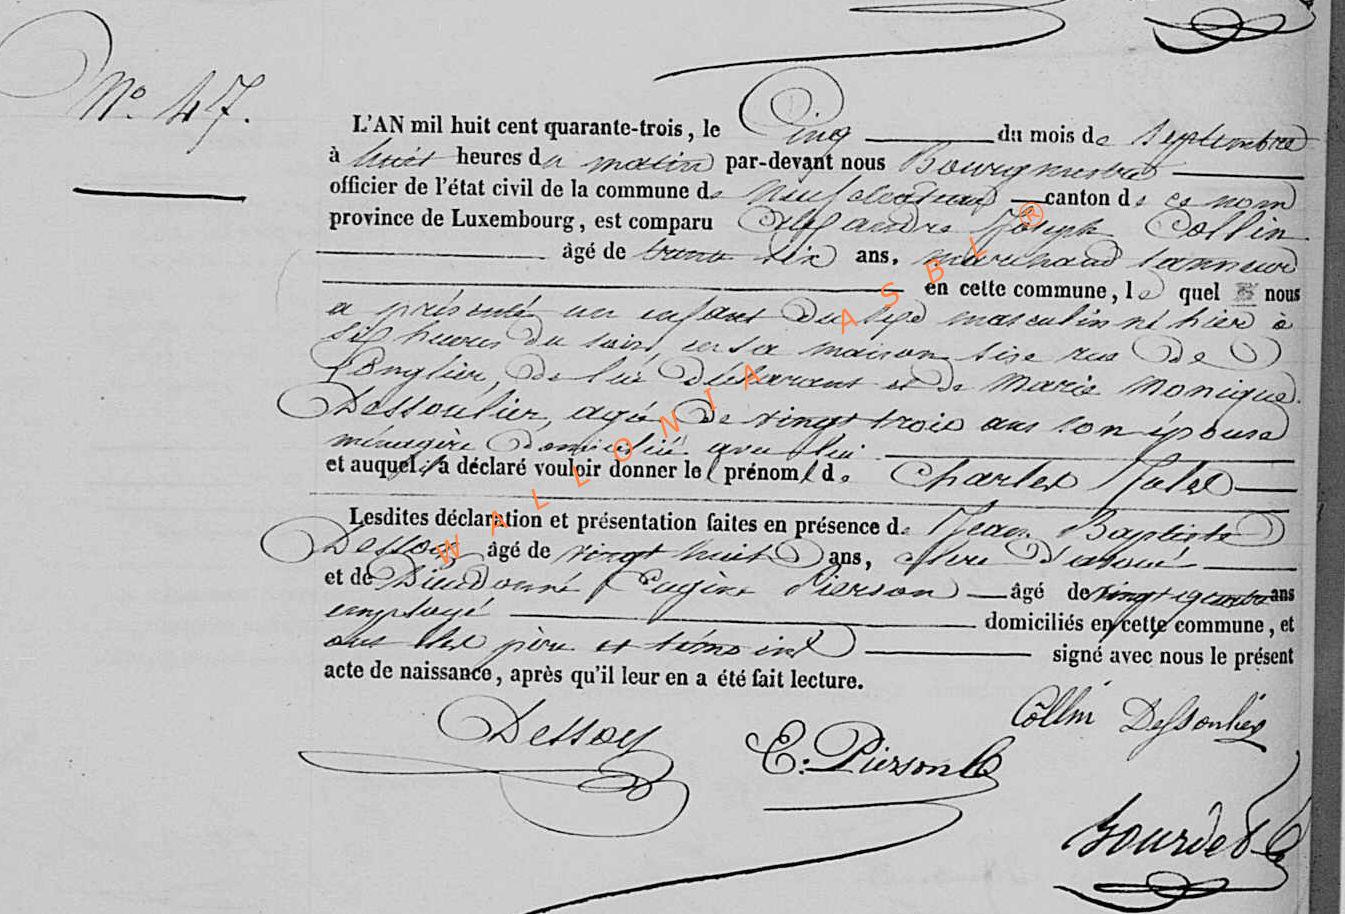 N° 47.
L'AN mil huit cent quarante-trois, le Cinq du mois de Septembre
à huit heures du matin par-devant nous Bourgmestre
officier de l'état civil de la commune de Neufchateau canton de ce nom
province de Luxembourg, est comparu Alexandre Joseph Collin
âgé de trente six ans, marchand tanneur
en cette commune, le quel nous
a présenté un enfant du sexe masculin né hier à
six heures du soir, en sa maison sise rue de
Longlier, de lui déclarant et de Marie Monique
Dessoulier, agée de vingt trois ans son épouse
ménagère domiciliée avec lui
et auquel il a déclaré vouloir donner le prénom de Charles Jules
Lesdites déclaration et présentation faites en présence de Jean Baptiste
Dessoy, âgé de vingt huit ans, clerc d'avoué
et de Dieudonné Eugène Pierson âgé de vingt quatre ans
employé domiciliés en cette commune, et
ont les père et témoins signé avec nous le présent
acte de naissance, après qu'il leur en a été fait lecture.
Collin Dessoulier
Dessoy
E. Pierson
WALLONIA ASBL ®